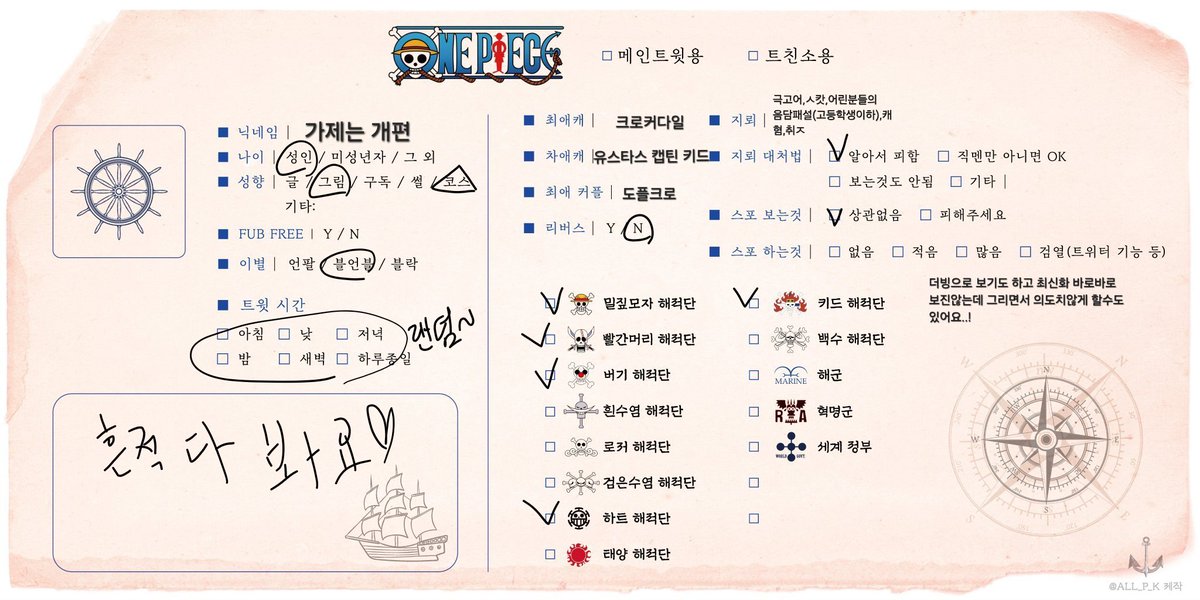 ONE PIECE
□ 메인트윗용 □ 트친소용
■ 닉네임 | 가제는 개편
■ 나이 | 성인 / 미성년자 / 그 외
■ 성향 | 글 / 그림 / 구독 / 썰 / 코스
기타:
■ FUB FREE | Y / N
■ 이별 | 언팔 / 블언블 / 블락
■ 트윗 시간
□ 아침 □ 낮 □ 저녁
□ 밤 □ 새벽 □ 하루종일
랜덤~
흔적 다 봐요♡
■ 최애캐 | 크로커다일
■ 차애캐 | 유스타스 캡틴 키드
■ 최애 커플 | 도플크로
■ 리버스 | Y / N
■ 지뢰 | 극고어,ㅅ캇,어린분들의
음담패설(고등학생이하),캐
혐,취ㅈ
■ 지뢰 대처법 | □ 알아서 피함 □ 직멘만 아니면 OK
□ 보는것도 안됨 □ 기타 |
■ 스포 보는것 | □ 상관없음 □ 피해주세요
■ 스포 하는것 | □ 없음 □ 적음 □ 많음 □ 검열(트위터 기능 등)
더빙으로 보기도 하고 최신화 바로바로
보진않는데 그리면서 의도치않게 할수도
있어요..!
□ 밀짚모자 해적단
□ 빨간머리 해적단
□ 버기 해적단
□ 흰수염 해적단
□ 로커 해적단
□ 검은수염 해적단
□ 하트 해적단
□ 태양 해적단
□ 키드 해적단
□ 백수 해적단
□ MARINE 해군
□ R A 혁명군
□ WORLD GOVT. 세계 정부
□
□
N
W E
S
@ALL_P_K 제작